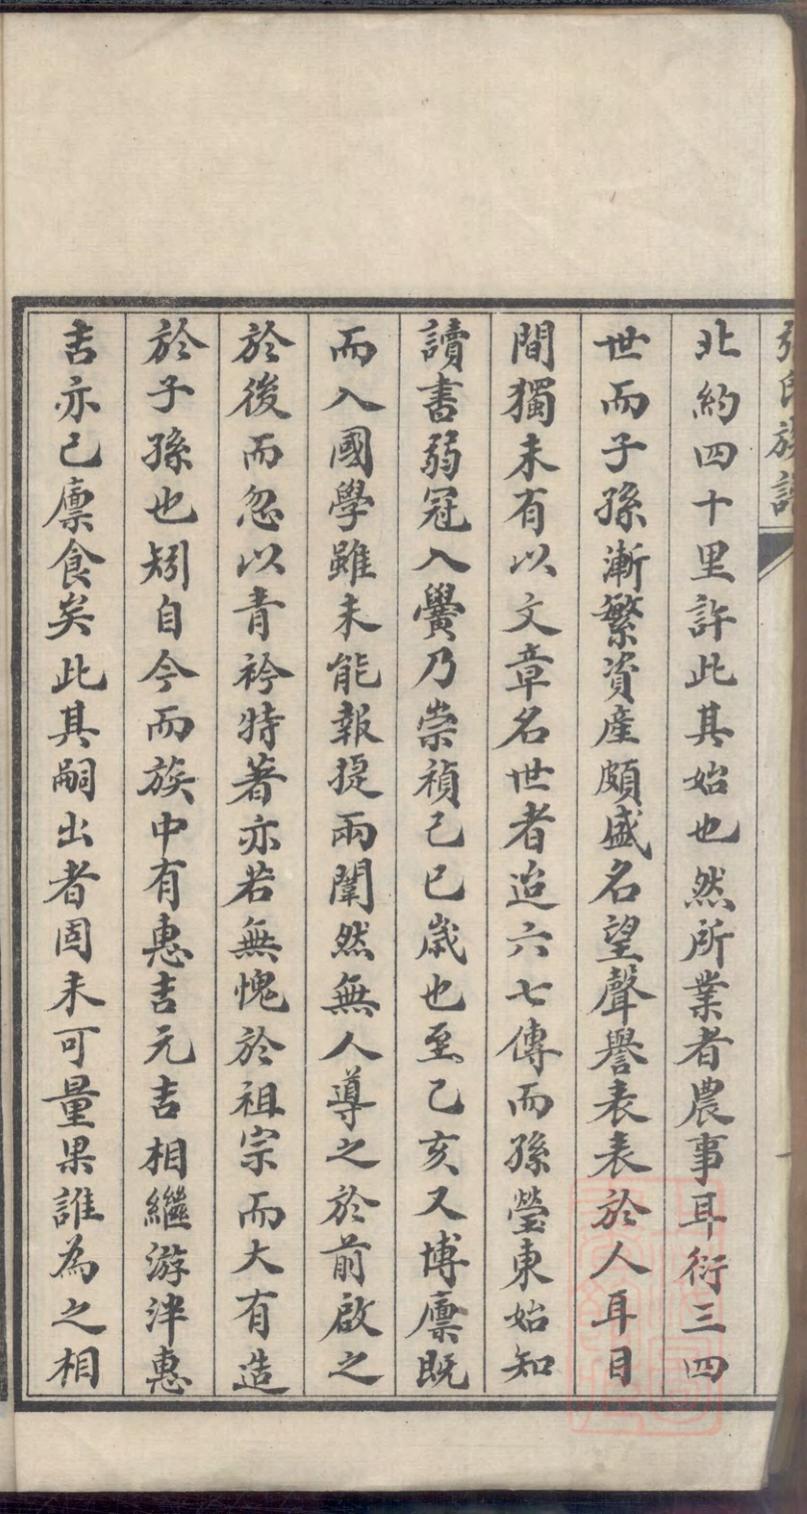 張氏族譜
北約四十里許此其始也然所業者農事耳衍三四
世而子孫漸繁資產頗盛名望聲譽表表於人耳目
間獨未有以文章名世者迨六七傳而孫瑩東始知
讀書弱冠入黌乃崇禎己巳歲也至乙亥又博廩既
而入國學雖未能報捷兩闈然無人導之於前啟之
於後而忽以青衿特著亦若無愧於祖宗而大有造
於子孫也矧自今而族中有惠吉元吉相繼游泮惠
吉亦已廩食矣此其嗣出者固未可量果誰為之相